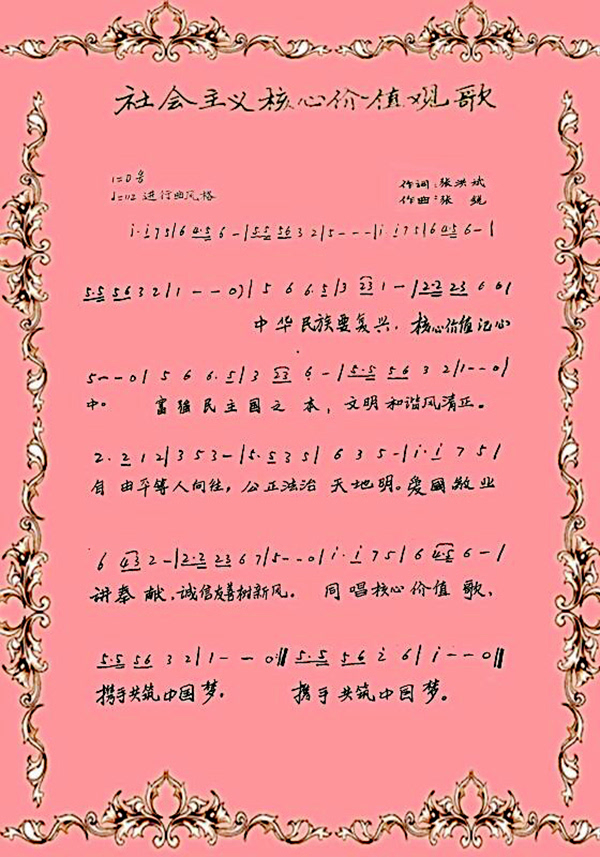 社会主义核心价值观歌
1=D 4/4
♩=112 进行曲风格
作词:张洪斌
作曲:张 锐
i·i75|6 4·5 6-|5·5 56 3 2|5---|i·i75|6 4·5 6-|
5·5 56 3 2|1--0)|5 6 6·5|3 23 1-|2·2 23 6 6|
中华民族要复兴,核心价值记心
5--0|5 6 6·5|3 23 6-|5·5 56 3 2|1--0|
中。 富强民主国之本,文明和谐风清正。
2·212|353-|5·535|635-|i·i75|
自由平等人向往,公正法治天地明。爱國敬业
6 43 2-|2·2 23 6 7|5--0|i·i75|6 4·5 6-|
讲奉献,诚信友善树新风。 同唱核心价值歌,
5·5 56 3 2|1--0:‖5·5 56 i 6|i--0‖
携手共筑中国梦。 携手共筑中国梦。